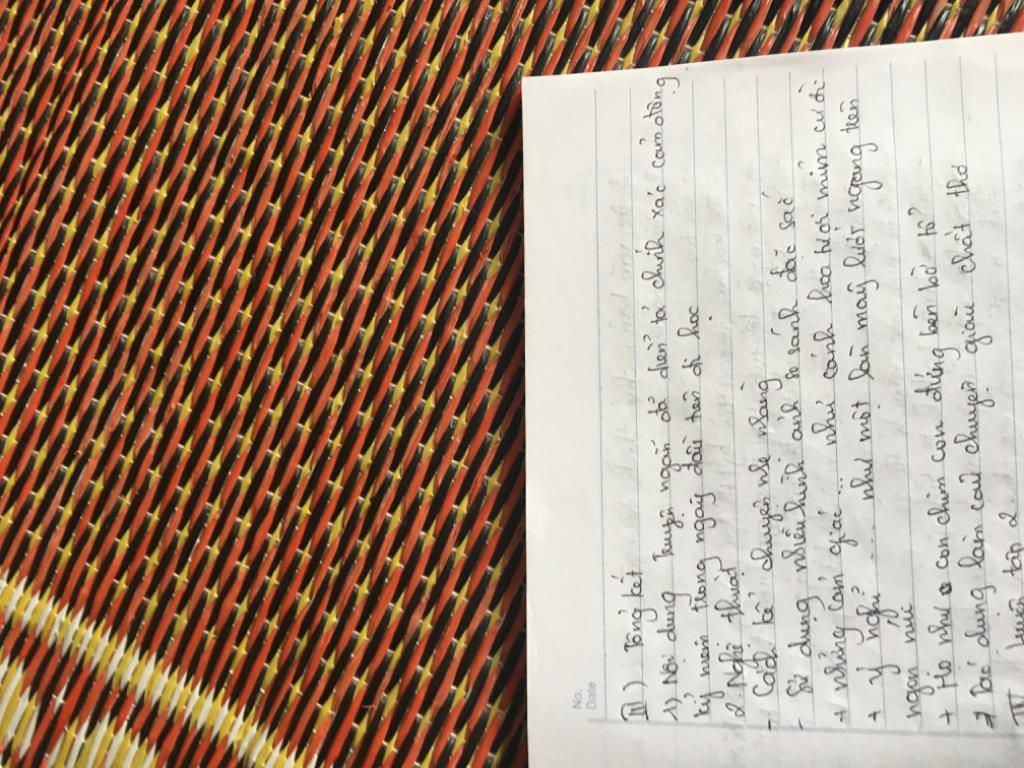 No.
Date
III) Tổng kết
1) Nội dung Truyện ngắn đã diễn tả chính xác cảm động
kỷ niệm trong ngày đầu tiên đi học
2. Nghệ thuật
- Cách kể chuyện nhẹ nhàng
- Sử dụng nhiều hình ảnh so sánh đặc sắc
+ những cảm giác ... như cánh hoa tươi mỉm cười
+ ý nghĩ ... như một làn mây lướt ngang trên
ngọn núi
+ Họ như con chim con đứng bên bờ tổ
→ Tác dụng làm câu chuyện giàu chất thơ
IV luyện tập 2